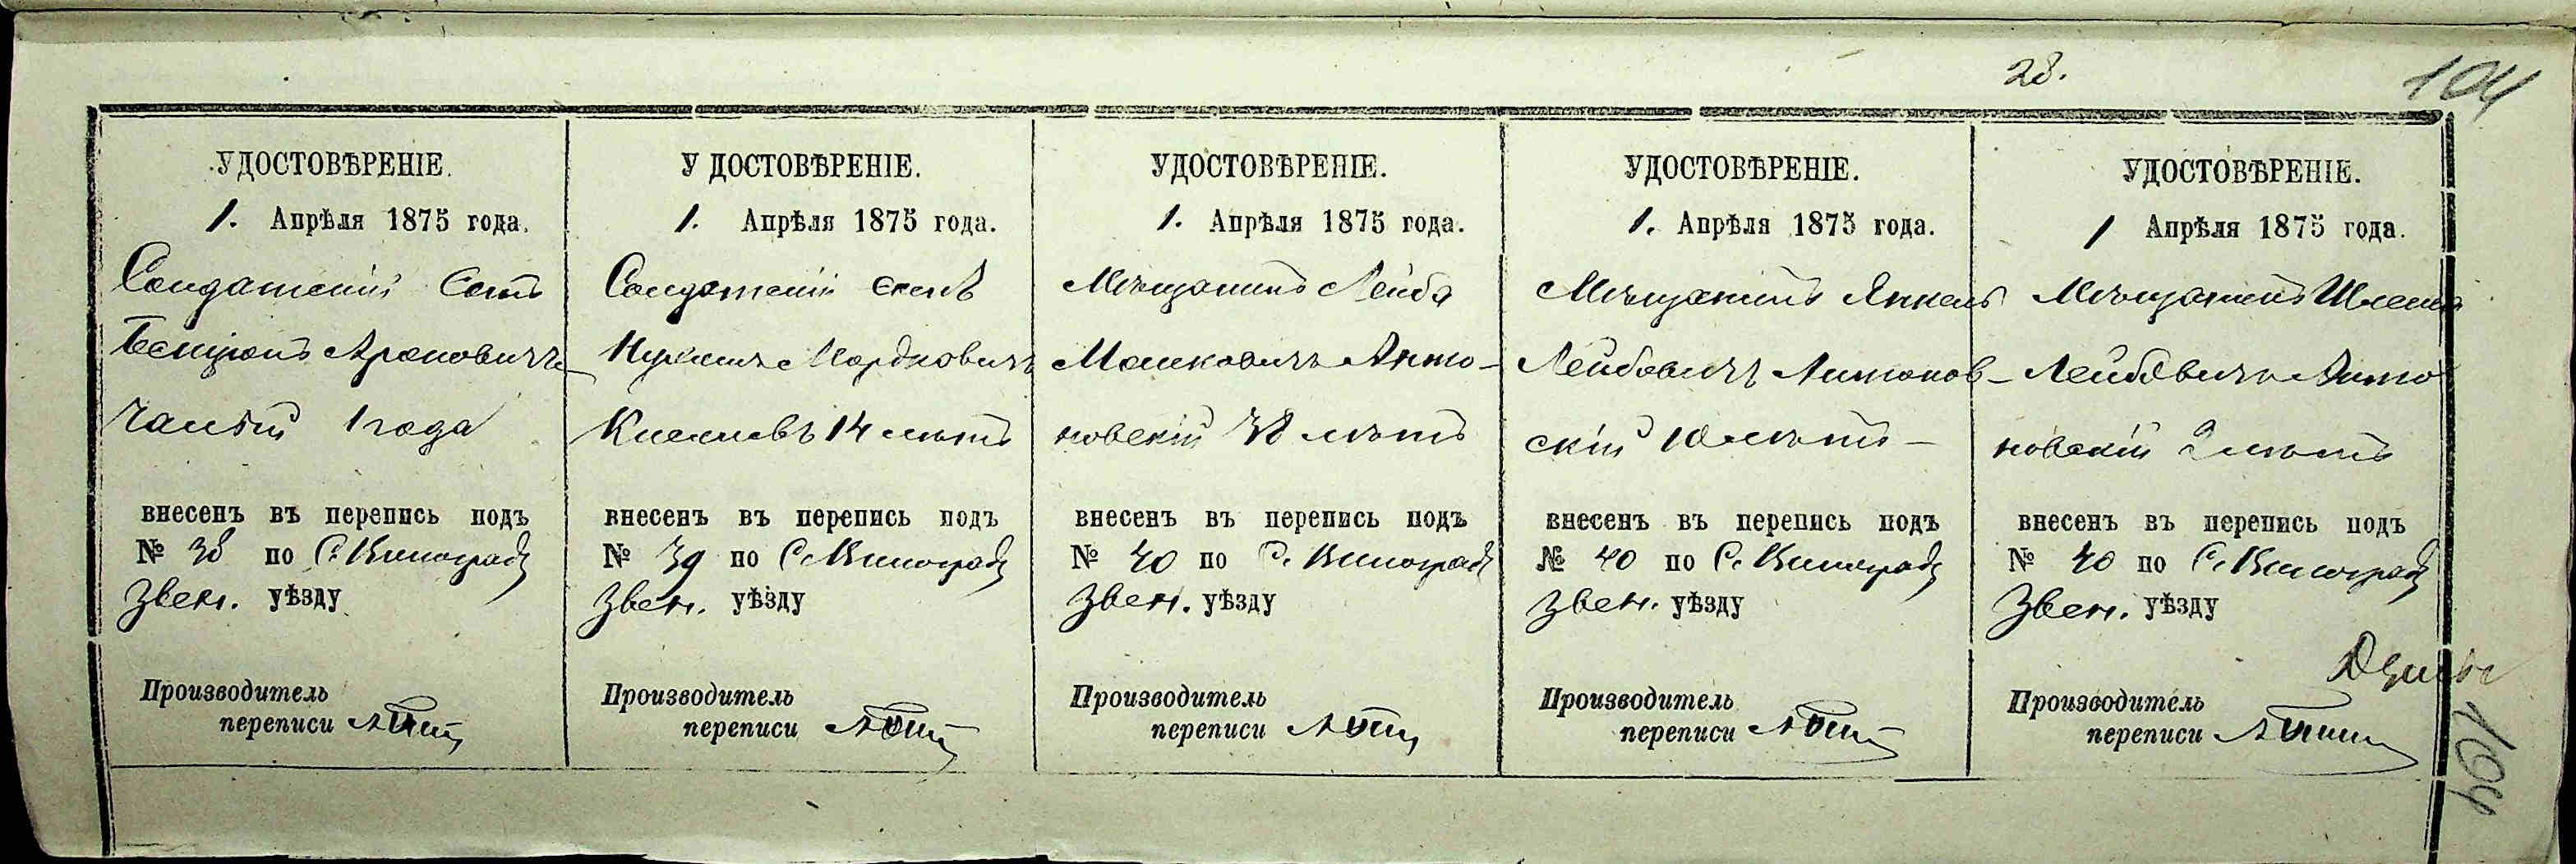 28.
104
УДОСТОВѢРЕНІЕ.
1. Апрѣля 1875 года.
Солдатскій Сынъ
Бенціонъ Ароновичъ
1 года
внесенъ въ перепись подъ
№ 38 по С. Виноградъ
Звен. уѣзду
Производитель
переписи
УДОСТОВѢРЕНІЕ.
1. Апрѣля 1875 года.
Солдатскій сынъ
Мордковичъ
14 лѣтъ
внесенъ въ перепись подъ
№ 39 по С. Виноградъ
Звен. уѣзду
Производитель
переписи
УДОСТОВѢРЕНІЕ.
1. Апрѣля 1875 года.
Мѣщанинъ Лейба
Мошковичъ Анто-
новскій 38 лѣтъ
внесенъ въ перепись подъ
№ 40 по С. Виноградъ
Звен. уѣзду
Производитель
переписи
УДОСТОВѢРЕНІЕ.
1. Апрѣля 1875 года.
Мѣщанинъ Янкель
Лейбовичъ Антонов-
скій 10 лѣтъ
внесенъ въ перепись подъ
№ 40 по С. Виноградъ
Звен. уѣзду
Производитель
переписи
УДОСТОВѢРЕНІЕ.
1 Апрѣля 1875 года.
Мѣщанинъ Шлема
Лейбовичъ Анто
новскій 2 лѣтъ
внесенъ въ перепись подъ
№ 40 по С. Виноградъ
Звен. уѣзду
Производитель
переписи
104